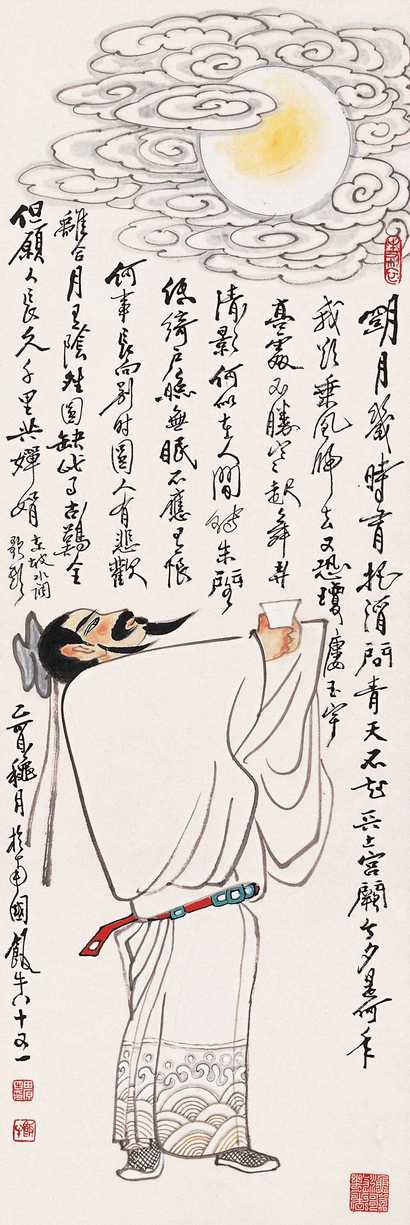 明月幾時有把酒問青天不知天上宮闕今夕是何年
我欲乘風歸去又恐瓊樓玉宇
高處不勝寒起舞弄
清影何似在人間轉朱閣
低綺戶照無眠不應有恨
何事長向別時圓人有悲歡
離合月有陰晴圓缺此事古難全
但願人長久千里共嬋娟
東坡水調
歌頭
乙酉穐月於南國飯牛八十又一